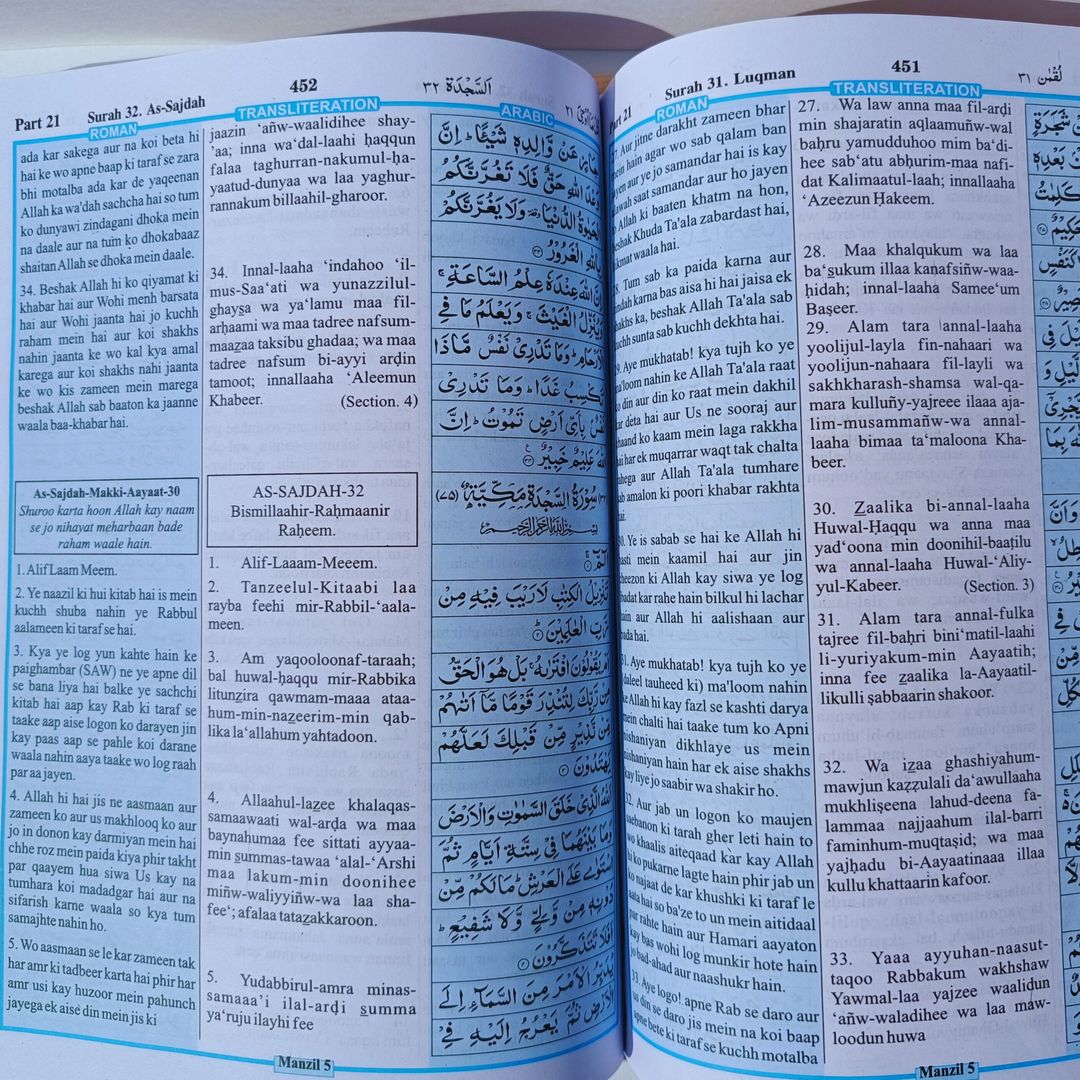 452
Part 21
Surah 32. As-Sajdah
السَّجْدَة ٣٢
ROMAN
TRANSLITERATION
ARABIC
ada kar sakega aur na koi beta hi
hai ke wo apne baap ki taraf se zara
bhi motalba ada kar de yaqeenan
Allah ka wa'dah sachcha hai so tum
ko dunyawi zindagani dhoka mein
na daale aur na tum ko dhokabaaz
shaitan Allah se dhoka mein daale.
34. Beshak Allah hi ko qiyamat ki
khabar hai aur Wohi menh barsata
hai aur Wohi jaanta hai jo kuchh
raham mein hai aur koi shakhs
nahin jaanta ke wo kal kya amal
karega aur koi shakhs nahi jaanta
ke wo kis zameen mein marega
beshak Allah sab baaton ka jaanne
waala baa-khabar hai.
As-Sajdah-Makki-Aayaat-30
Shuroo karta hoon Allah kay naam
se jo nihayat meharbaan bade
raham waale hain.
1. Alif Laam Meem.
2. Ye naazil ki hui kitab hai is mein
kuchh shuba nahin ye Rabbul
aalameen ki taraf se hai.
3. Kya ye log yun kahte hain ke
paighambar (SAW) ne ye apne dil
se bana liya hai balke ye sachchi
kitab hai aap kay Rab ki taraf se
taake aap aise logon ko darayen jin
kay paas aap se pahle koi darane
waala nahin aaya taake wo log raah
par aa jayen.
4. Allah hi hai jis ne aasmaan aur
zameen ko aur us makhlooq ko aur
jo in donon kay darmiyan mein hai
chhe roz mein paida kiya phir takht
par qaayem hua siwa Us kay na
tumhara koi madadgar hai aur na
sifarish karne waala so kya tum
samajhte nahin ho.
5. Wo aasmaan se le kar zameen tak
har amr ki tadbeer karta hai phir har
amr usi kay huzoor mein pahunch
jayega ek aise din mein jis ki
jaazin ‘añw-waalidihee shay-
’aa; inna wa‘dal-laahi ḥaqqun
falaa taghurran-nakumul-ḥa-
yaatud-dunyaa wa laa yaghur-
rannakum billaahil-gharoor.
34. Innal-laaha ‘indahoo ‘il-
mus-Saa‘ati wa yunazzilul-
ghaysa wa ya‘lamu maa fil-
arḥaami wa maa tadree nafsum-
maazaa taksibu ghadaa; wa maa
tadree nafsum bi-ayyi arḍin
tamoot; innallaaha ‘Aleemun
Khabeer. (Section. 4)
AS-SAJDAH-32
Bismillaahir-Raḥmaanir
Raḥeem.
1. Alif-Laaam-Meeem.
2. Tanzeelul-Kitaabi laa
rayba feehi mir-Rabbil-‘aala-
meen.
3. Am yaqooloonaf-taraah;
bal huwal-ḥaqqu mir-Rabbika
litunzira qawmam-maaa ataa-
hum-min-nazeerim-min qab-
lika la‘allahum yahtadoon.
4. Allaahul-lazee khalaqas-
samaawaati wal-arḍa wa maa
baynahumaa fee sittati ayyaa-
min summas-tawaa ‘alal-‘Arshi
maa lakum-min doonihee
miñw-waliyyiñw-wa laa sha-
fee‘; afalaa tatazakkaroon.
5. Yudabbirul-amra minas-
samaaa’i ilal-arḍi summa
ya‘ruju ilayhi fee
جَازٍ عَنْ وَّالِدِهٖ شَيْـًٔا ؕ اِنَّ
وَعْدَ اللّٰهِ حَقٌّ فَلَا تَغُرَّنَّكُمُ
الْحَيٰوةُ الدُّنْيَا ۥ وَلَا يَغُرَّنَّكُمْ
بِاللّٰهِ الْغَرُوْرُ ٣٣
اِنَّ اللّٰهَ عِنْدَهٗ عِلْمُ السَّاعَةِ ۚ
وَيُنَزِّلُ الْغَيْثَ ۚ وَيَعْلَمُ مَا فِي
الْاَرْحَامِ ؕ وَمَا تَدْرِيْ نَفْسٌ مَّاذَا
تَكْسِبُ غَدًا ؕ وَمَا تَدْرِيْ
نَفْسٌۢ بِاَيِّ اَرْضٍ تَمُوْتُ ؕ اِنَّ
اللّٰهَ عَلِيْمٌ خَبِيْرٌ ٣٤
٣٢ سُوْرَةُ السَّجْدَةِ مَكِّيَّةٌ (٧٥)
بِسْمِ اللّٰهِ الرَّحْمٰنِ الرَّحِيْمِ
الٓمّٓ ١
تَنْزِيْلُ الْكِتٰبِ لَا رَيْبَ فِيْهِ مِنْ
رَّبِّ الْعٰلَمِيْنَ ٢
اَمْ يَقُوْلُوْنَ افْتَرٰىهُ ۚ بَلْ هُوَ الْحَقُّ
مِنْ رَّبِّكَ لِتُنْذِرَ قَوْمًا مَّآ اَتٰىهُمْ
مِّنْ نَّذِيْرٍ مِّنْ قَبْلِكَ لَعَلَّهُمْ
يَهْتَدُوْنَ ٣
اَللّٰهُ الَّذِيْ خَلَقَ السَّمٰوٰتِ وَالْاَرْضَ
وَمَا بَيْنَهُمَا فِيْ سِتَّةِ اَيَّامٍ ثُمَّ
اسْتَوٰى عَلَى الْعَرْشِ ؕ مَا لَكُمْ مِّنْ
دُوْنِهٖ مِنْ وَّلِيٍّ وَّلَا شَفِيْعٍ ؕ
اَفَلَا تَتَذَكَّرُوْنَ ٤
يُدَبِّرُ الْاَمْرَ مِنَ السَّمَآءِ اِلَى
الْاَرْضِ ثُمَّ يَعْرُجُ اِلَيْهِ فِيْ
Manzil 5
451
Part 21
Surah 31. Luqman
لُقْمٰن ٣١
ROMAN
TRANSLITERATION
27. Aur jitne darakht zameen bhar
mein hain agar wo sab qalam ban
jayen aur ye jo samandar hai is kay
elawah saat samandar aur ho jayen
to Allah ki baaten khatm na hon,
beshak Khuda Ta'ala zabardast hai,
hikmat waala hai.
28. Tum sab ka paida karna aur
zindah karna bas aisa hi hai jaisa ek
shakhs ka, beshak Allah Ta'ala sab
kuchh sunta sab kuchh dekhta hai.
29. Aye mukhatab! kya tujh ko ye
ma'loom nahin ke Allah Ta'ala raat
ko din aur din ko raat mein dakhil
kar deta hai aur Us ne sooraj aur
chaand ko kaam mein laga rakkha
hai har ek muqarrar waqt tak chalta
rahega aur Allah Ta'ala tumhare
sab amalon ki poori khabar rakhta
hai.
30. Ye is sabab se hai ke Allah hi
hasti mein kaamil hai aur jin
cheezon ki Allah kay siwa ye log
ibadat kar rahe hain bilkul hi lachar
hain aur Allah hi aalishaan aur
bada hai.
31. Aye mukhatab! kya tujh ko ye
(daleel tauheed ki) ma'loom nahin
ke Allah hi kay fazl se kashti darya
mein chalti hai taake tum ko Apni
nishaniyan dikhlaye us mein
nishaniyan hain har ek aise shakhs
kay liye jo saabir wa shakir ho.
32. Aur jab un logon ko maujen
saebanon ki tarah gher leti hain to
wo khaalis aiteqaad kar kay Allah
hi ko pukarne lagte hain phir jab un
ko najaat de kar khushki ki taraf le
aata hai so ba'ze to un mein aitidaal
par rahte hain aur Hamari aayaton
kay bas wohi log munkir hote hain
jo bad-ahad aur naashukr hain.
33. Aye logo! apne Rab se daro aur
us din se daro jis mein na koi baap
apne bete ki taraf se kuchh motalba
27. Wa law anna maa fil-arḍi
min shajaratin aqlaamuñw-wal
baḥru yamudduhoo mim ba‘di-
hee sab‘atu abḥurim-maa nafi-
dat Kalimaatul-laah; innallaaha
‘Azeezun Ḥakeem.
28. Maa khalqukum wa laa
ba‘sukum illaa kanafsiñw-waa-
ḥidah; innal-laaha Samee‘um
Baṣeer.
29. Alam tara annal-laaha
yoolijul-layla fin-nahaari wa
yoolijun-nahaara fil-layli wa
sakhkharash-shamsa wal-qa-
mara kulluñy-yajreee ilaaa aja-
lim-musammañw-wa annal-
laaha bimaa ta‘maloona Kha-
beer.
30. Zaalika bi-annal-laaha
Huwal-Ḥaqqu wa anna maa
yad‘oona min doonihil-baaṭilu
wa annal-laaha Huwal-‘Aliy-
yul-Kabeer. (Section. 3)
31. Alam tara annal-fulka
tajree fil-baḥri bini‘matil-laahi
li-yuriyakum-min Aayaatih;
inna fee zaalika la-Aayaatil-
likulli ṣabbaarin shakoor.
32. Wa izaa ghashiyahum-
mawjun kazzulali da‘awullaaha
mukhliṣeena lahud-deena fa-
lammaa najjaahum ilal-barri
faminhum-muqtaṣid; wa maa
yajḥadu bi-Aayaatinaaa illaa
kullu khattaarin kafoor.
33. Yaaa ayyuhan-naasut-
taqoo Rabbakum wakhshaw
Yawmal-laa yajzee waalidun
‘añw-waladihee wa laa maw-
loodun huwa
Manzil 5